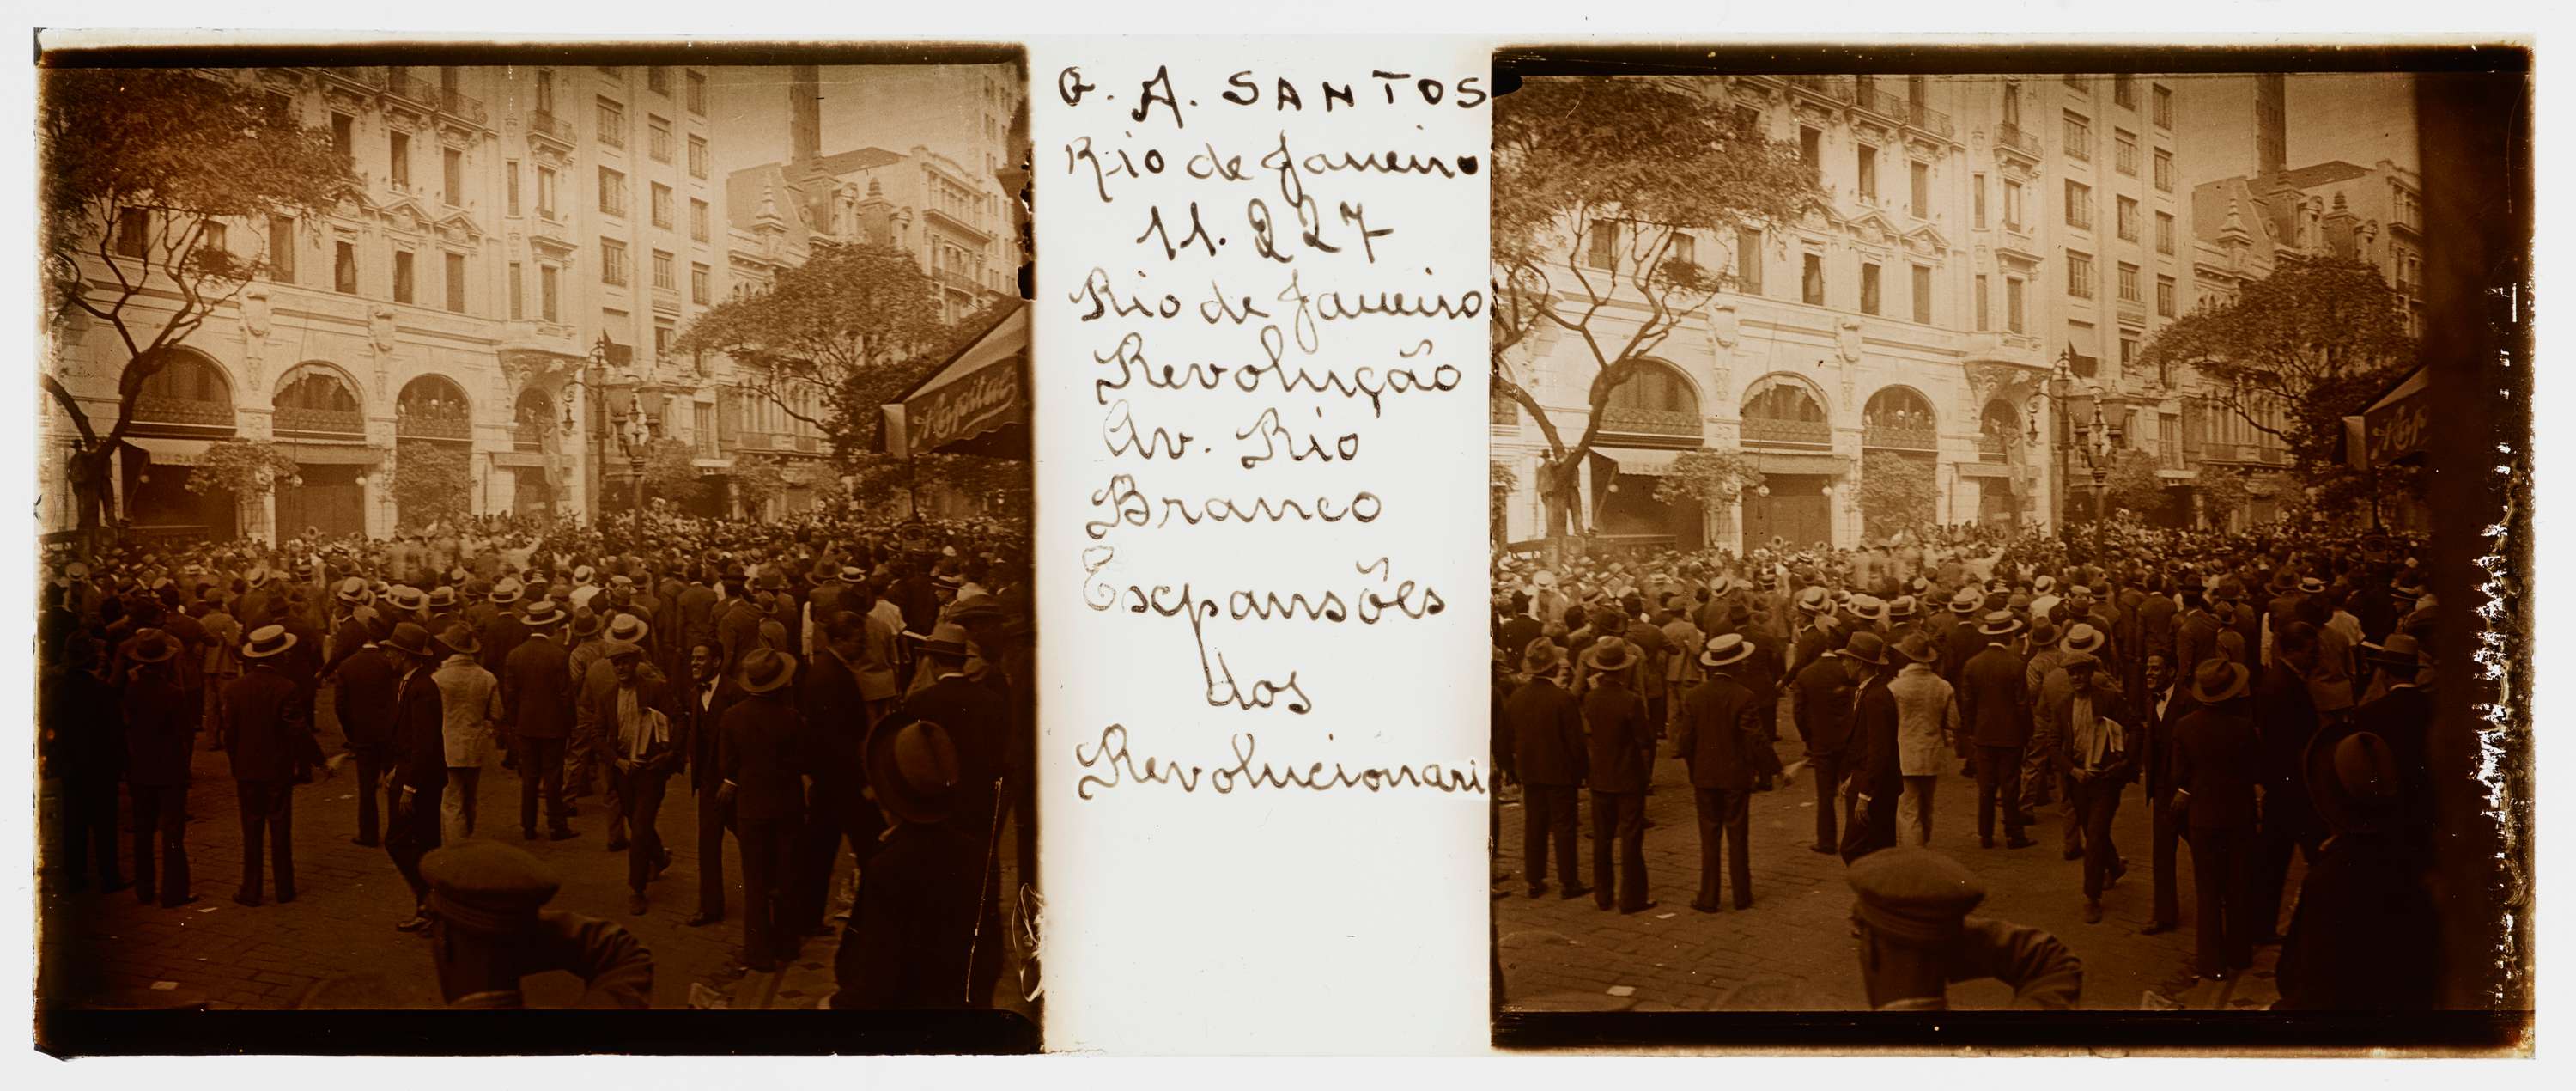 G. A. SANTOS
Rio de Janeiro
11.227
Rio de Janeiro
Revolução
Av. Rio
Branco
Expansões
dos
Revolucionari